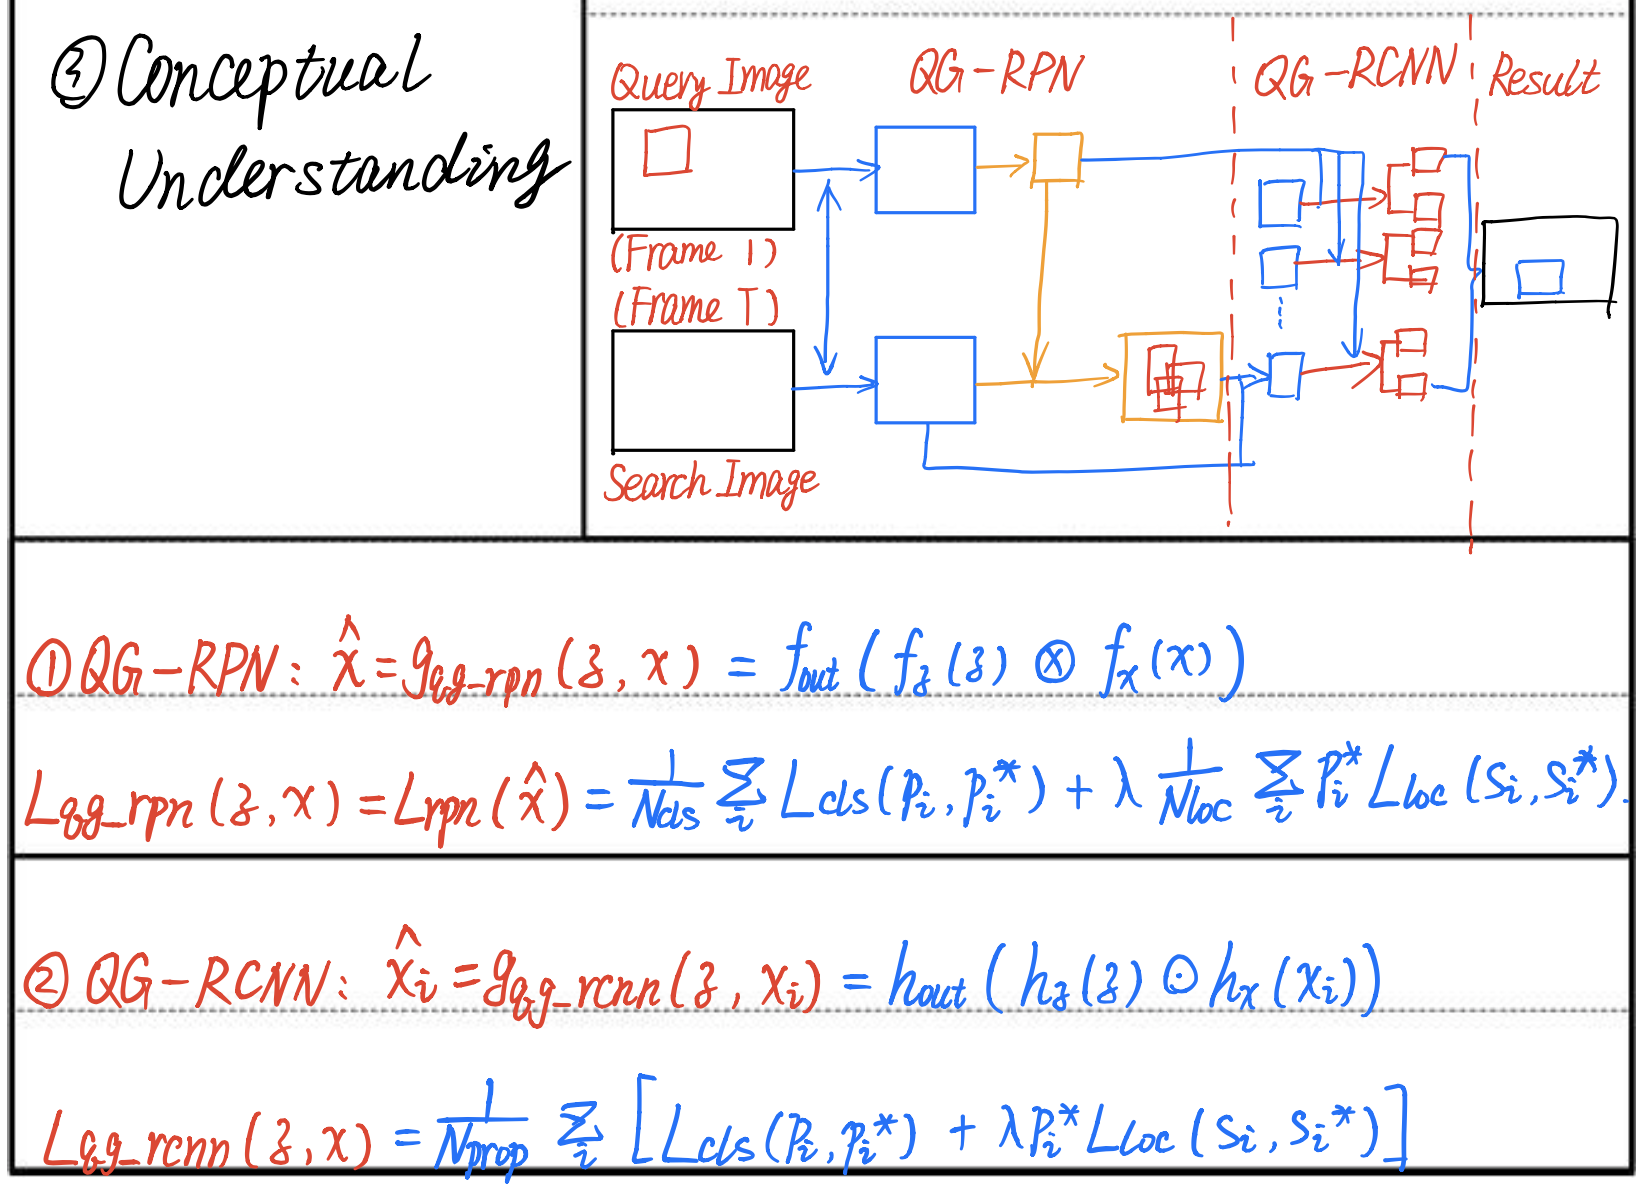 ③ Conceptual
Understanding
Query Image
QG-RPN
QG-RCNN
Result
(Frame 1)
(Frame T)
Search Image
① QG-RPN: x̂ = g_qg-rpn(z, x) = f_out(f_z(z) ⊗ f_x(x))
L_qg_rpn(z, x) = L_rpn(x̂) = 1/N_cls Σ_i L_cls(p_i, p_i*) + λ 1/N_loc Σ_i p_i* L_loc(s_i, s_i*).
② QG-RCNN: x̂_i = g_qg_rcnn(z, x_i) = h_out(h_z(z) ⊙ h_x(x_i))
L_qg_rcnn(z, x) = 1/N_prop Σ_i [L_cls(p_i, p_i*) + λ p_i* L_loc(s_i, s_i*)]